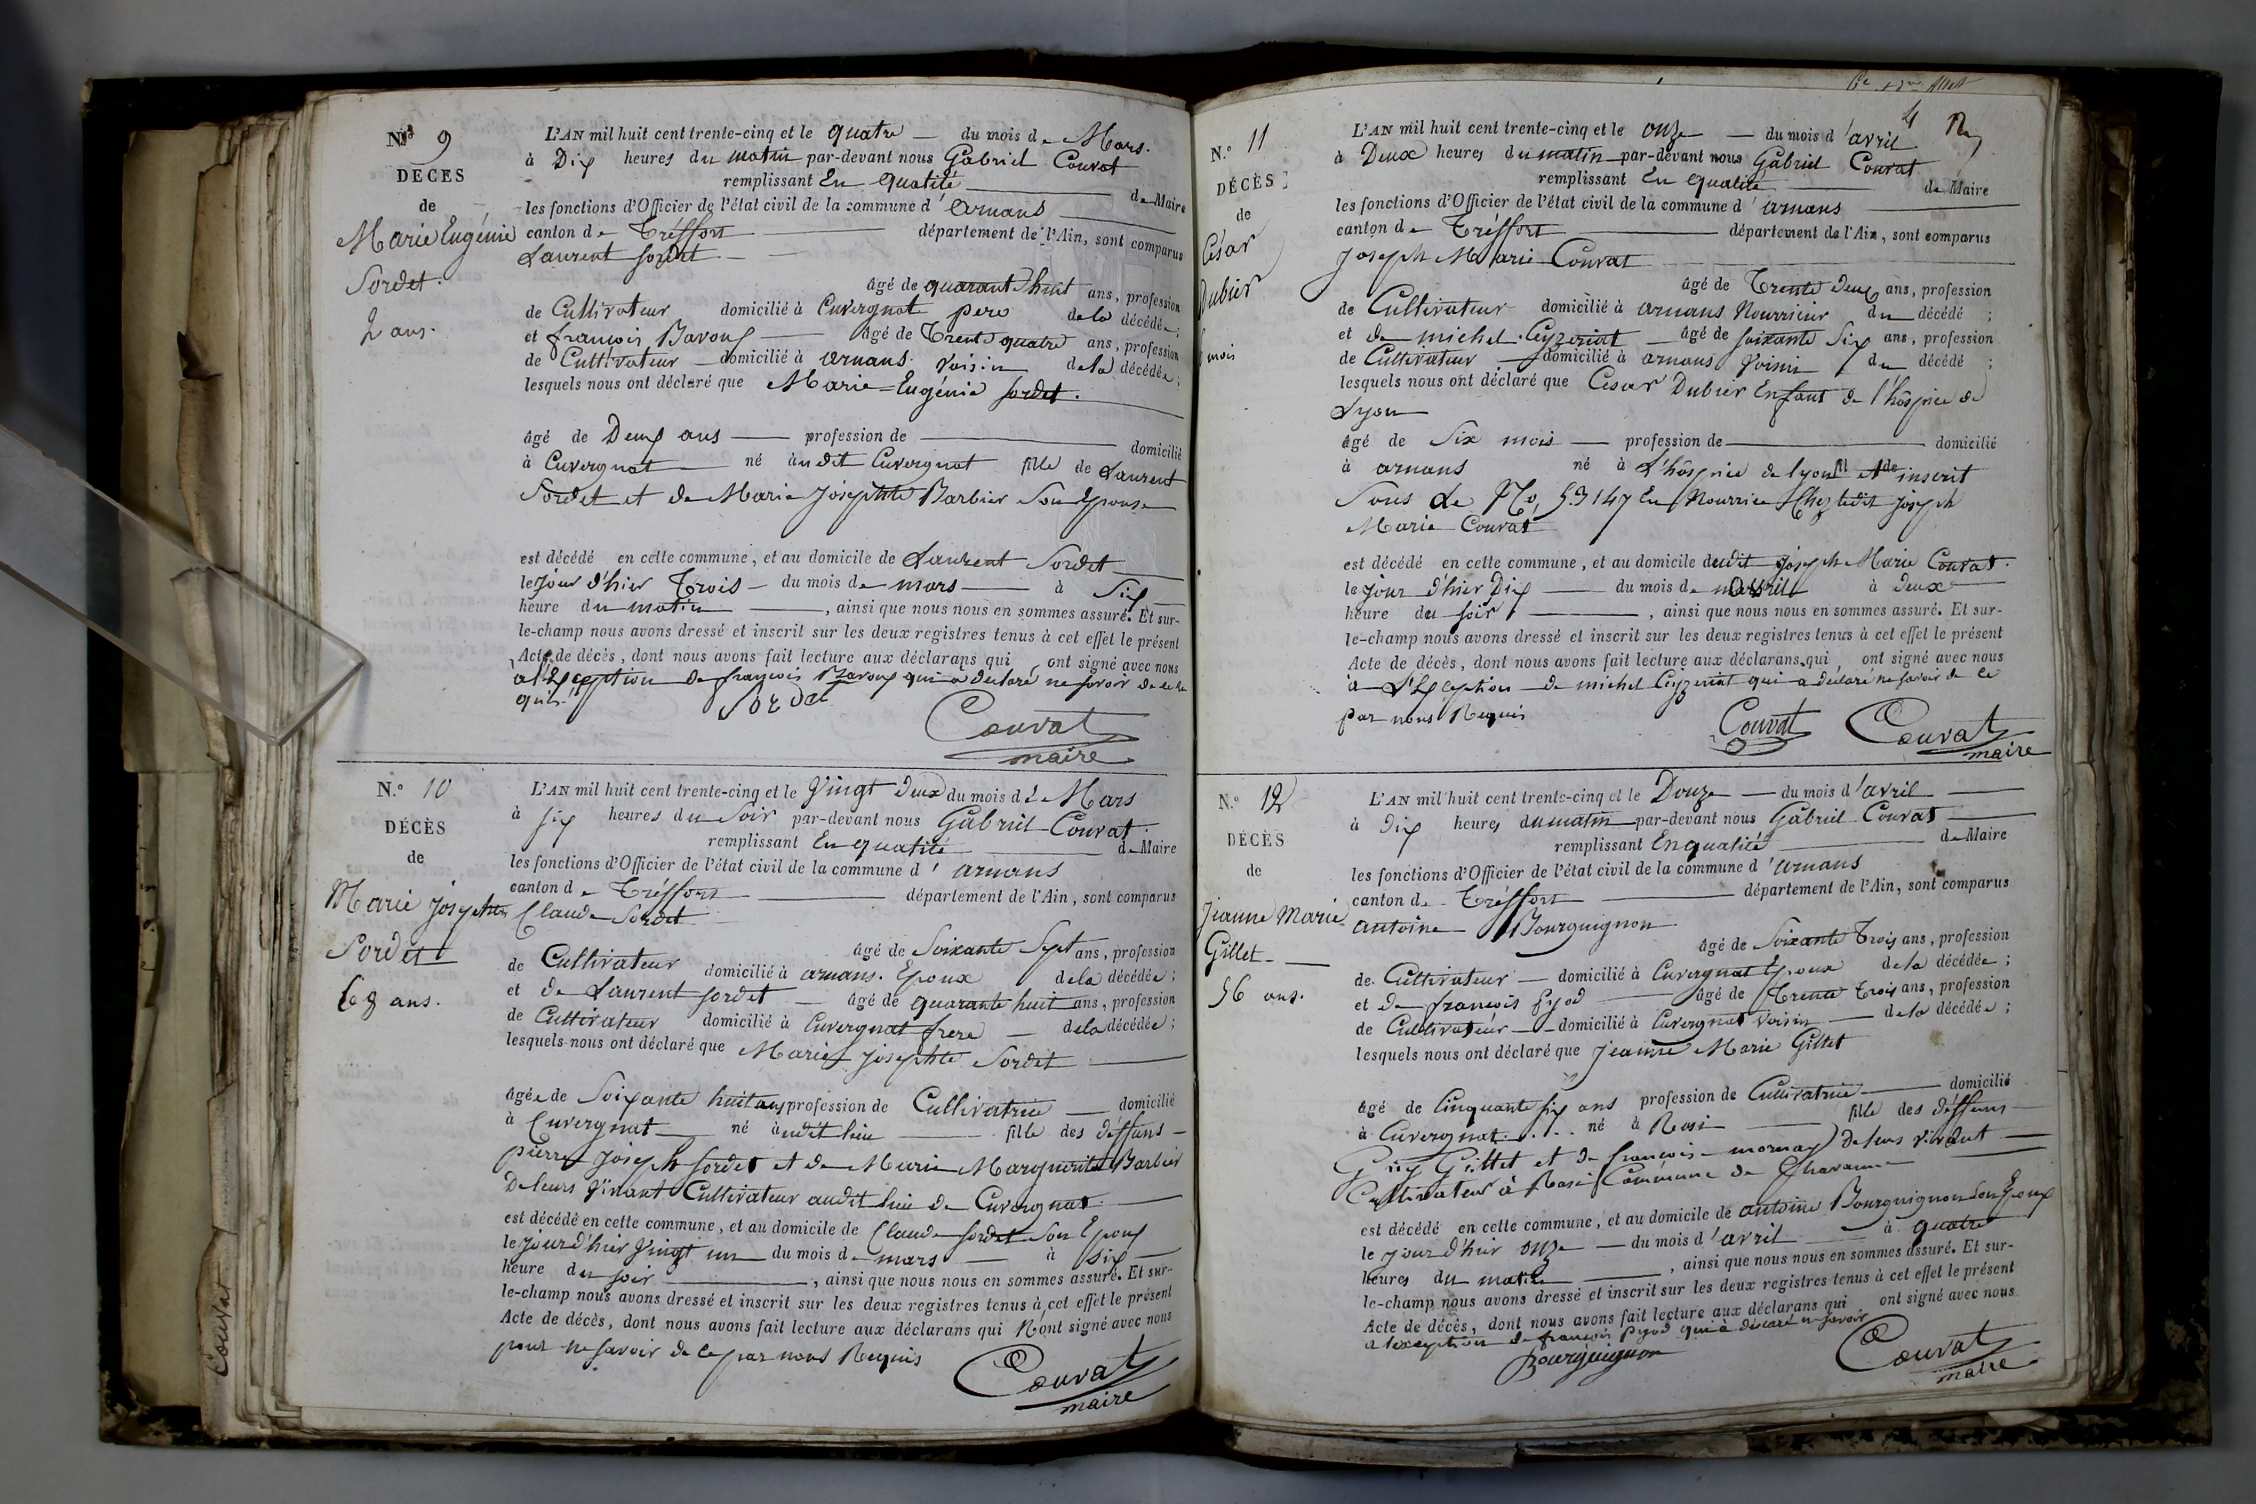 N.º 9
DÉCÈS
de
Marie Eugénie
Sordet.
2 ans.
L'AN mil huit cent trente-cinq et le quatre du mois de Mars.
à Dix heures du matin par-devant nous Gabriel Couvat
remplissant En qualité de Maire
les fonctions d'Officier de l'état civil de la commune d'arnans
canton de Tréffort département de l'Ain, sont comparus
Laurent Sordet
âgé de quarant huit ans, profession
de Cultivateur domicilié à Cuvergnat pere de la décédée;
et françois Bavoux âgé de Trente quatre ans, profession
de Cultivateur domicilié à arnans voisin de la décédée;
lesquels nous ont déclaré que Marie=Eugénie Sordet.
âgé de Deux ans profession de domicilié
à Cuvergnat né àudit Cuvergnat fille de Laurent
Sordet et de Marie Josephte Barbier Son Epouse
est décédé en cette commune, et au domicile de Laurent Sordet
le jour d'hier Trois du mois de mars à Six
heure du matin, ainsi que nous nous en sommes assuré. Et sur-
le-champ nous avons dressé et inscrit sur les deux registres tenus à cet effet le présent
Acte de décès, dont nous avons fait lecture aux déclarans qui ont signé avec nous
a l'Exception de françois Bavoux qui a déclaré ne savoir de ce
Sordet
Couvat
maire
N.º 10
DÉCÈS
de
Marie Josephte
Sordet
68 ans.
L'AN mil huit cent trente-cinq et le Vingt Deux du mois de Mars
à Six heures du Soir par-devant nous Gabriel Couvat
remplissant En qualité de Maire
les fonctions d'Officier de l'état civil de la commune d'arnans
canton de Tréffort département de l'Ain, sont comparus
Claude Sordet
âgé de Soixante Sept ans, profession
de Cultivateur domicilié à arnans. Epoux de la décédée;
et de Laurent Sordet âgé de quarante huit ans, profession
de Cultivateur domicilié à Cuvergnat frere de la décédée;
lesquels nous ont déclaré que Marie Josephte Sordet
âgée de Soixante huit ans profession de Cultivatrice domicilié
à Cuvergnat né àudit lieu fille des déffuns
pierre Joseph Sordet et de Marie Marguerite Barbier
De leurs Vivant Cultivateur audit lieu de Cuvergnat.
est décédé en cette commune, et au domicile de Claude Sordet Son Epoux
le jour d'hier Vingt un du mois de mars à six
heure du soir, ainsi que nous nous en sommes assuré. Et sur-
le-champ nous avons dressé et inscrit sur les deux registres tenus à cet effet le présent
Acte de décès, dont nous avons fait lecture aux déclarans qui N'ont signé avec nous
pour ne savoir de ce par nous Requis
Couvat
maire
Couvat
4
N.º 11
DÉCÈS
de
César
Dubier
mois
L'AN mil huit cent trente-cinq et le onze du mois d'avril
à Deux heures du matin par-devant nous Gabriel Couvat
remplissant En qualité de Maire
les fonctions d'Officier de l'état civil de la commune d'arnans
canton de Tréffort département de l'Ain, sont comparus
Joseph Marie Couvat
âgé de Trente Deux ans, profession
de Cultivateur domicilié à arnans Nourricier du décédé;
et de michel Ceyzeriat âgé de soixante Six ans, profession
de Cultivateur domicilié à arnans Voisin du décédé;
lesquels nous ont déclaré que César Dubier Enfant de l'hôspice de
Lyon
âgé de Six mois profession de domicilié
à arnans né à L'hôspice de lyon fil et de inscrit
Sous Le No, 53147 En Nourrice Chez ledit joseph
Marie Couvat
est décédé en cette commune, et au domicile dudit joseph Marie Couvat.
le jour d'hier Dix du mois de avril à deux
heure du soir, ainsi que nous nous en sommes assuré. Et sur-
le-champ nous avons dressé et inscrit sur les deux registres tenus à cet effet le présent
Acte de décès, dont nous avons fait lecture aux déclarans qui ont signé avec nous
à L'Exception de michel Ceyzeriat qui a déclaré ne savoir de ce
par nous Requis
Couvat Couvat
maire
N.º 12
DÉCÈS
de
Jeanne Marie
Gillet
56 ans.
L'AN mil huit cent trente-cinq et le Douze du mois d'avril
à Dix heures du matin par-devant nous Gabriel Couvat
remplissant En qualité de Maire
les fonctions d'Officier de l'état civil de la commune d'arnans
canton de Tréffort département de l'Ain, sont comparus
antoine Bourguignon
âgé de Soixante Trois ans, profession
de Cultivateur domicilié à Cuvergnat Epoux de la décédée;
et de françois Pyod âgé de Trente trois ans, profession
de Cultivateur domicilié à Cuvergnat Voisin de la décédée;
lesquels nous ont déclaré que Jeanne Marie Gillet
âgé de Cinquante Six ans profession de Cultivatrice domicilié
à Cuvergnat né à Rosi fille des déffuns
Gillet et de françoise mornay De leurs vivant
Cultivateur à Rosi Commune de Chavanne
est décédé en cette commune, et au domicile de antoine Bourguignon Son Epoux
le jour d'hier onze du mois d'avril à quatre
heures du matin, ainsi que nous nous en sommes assuré. Et sur-
le-champ nous avons dressé et inscrit sur les deux registres tenus à cet effet le présent
Acte de décès, dont nous avons fait lecture aux déclarans qui ont signé avec nous
a lexception de françois pyod qui à déclaré ne savoir
Bourguignon
Couvat
maire